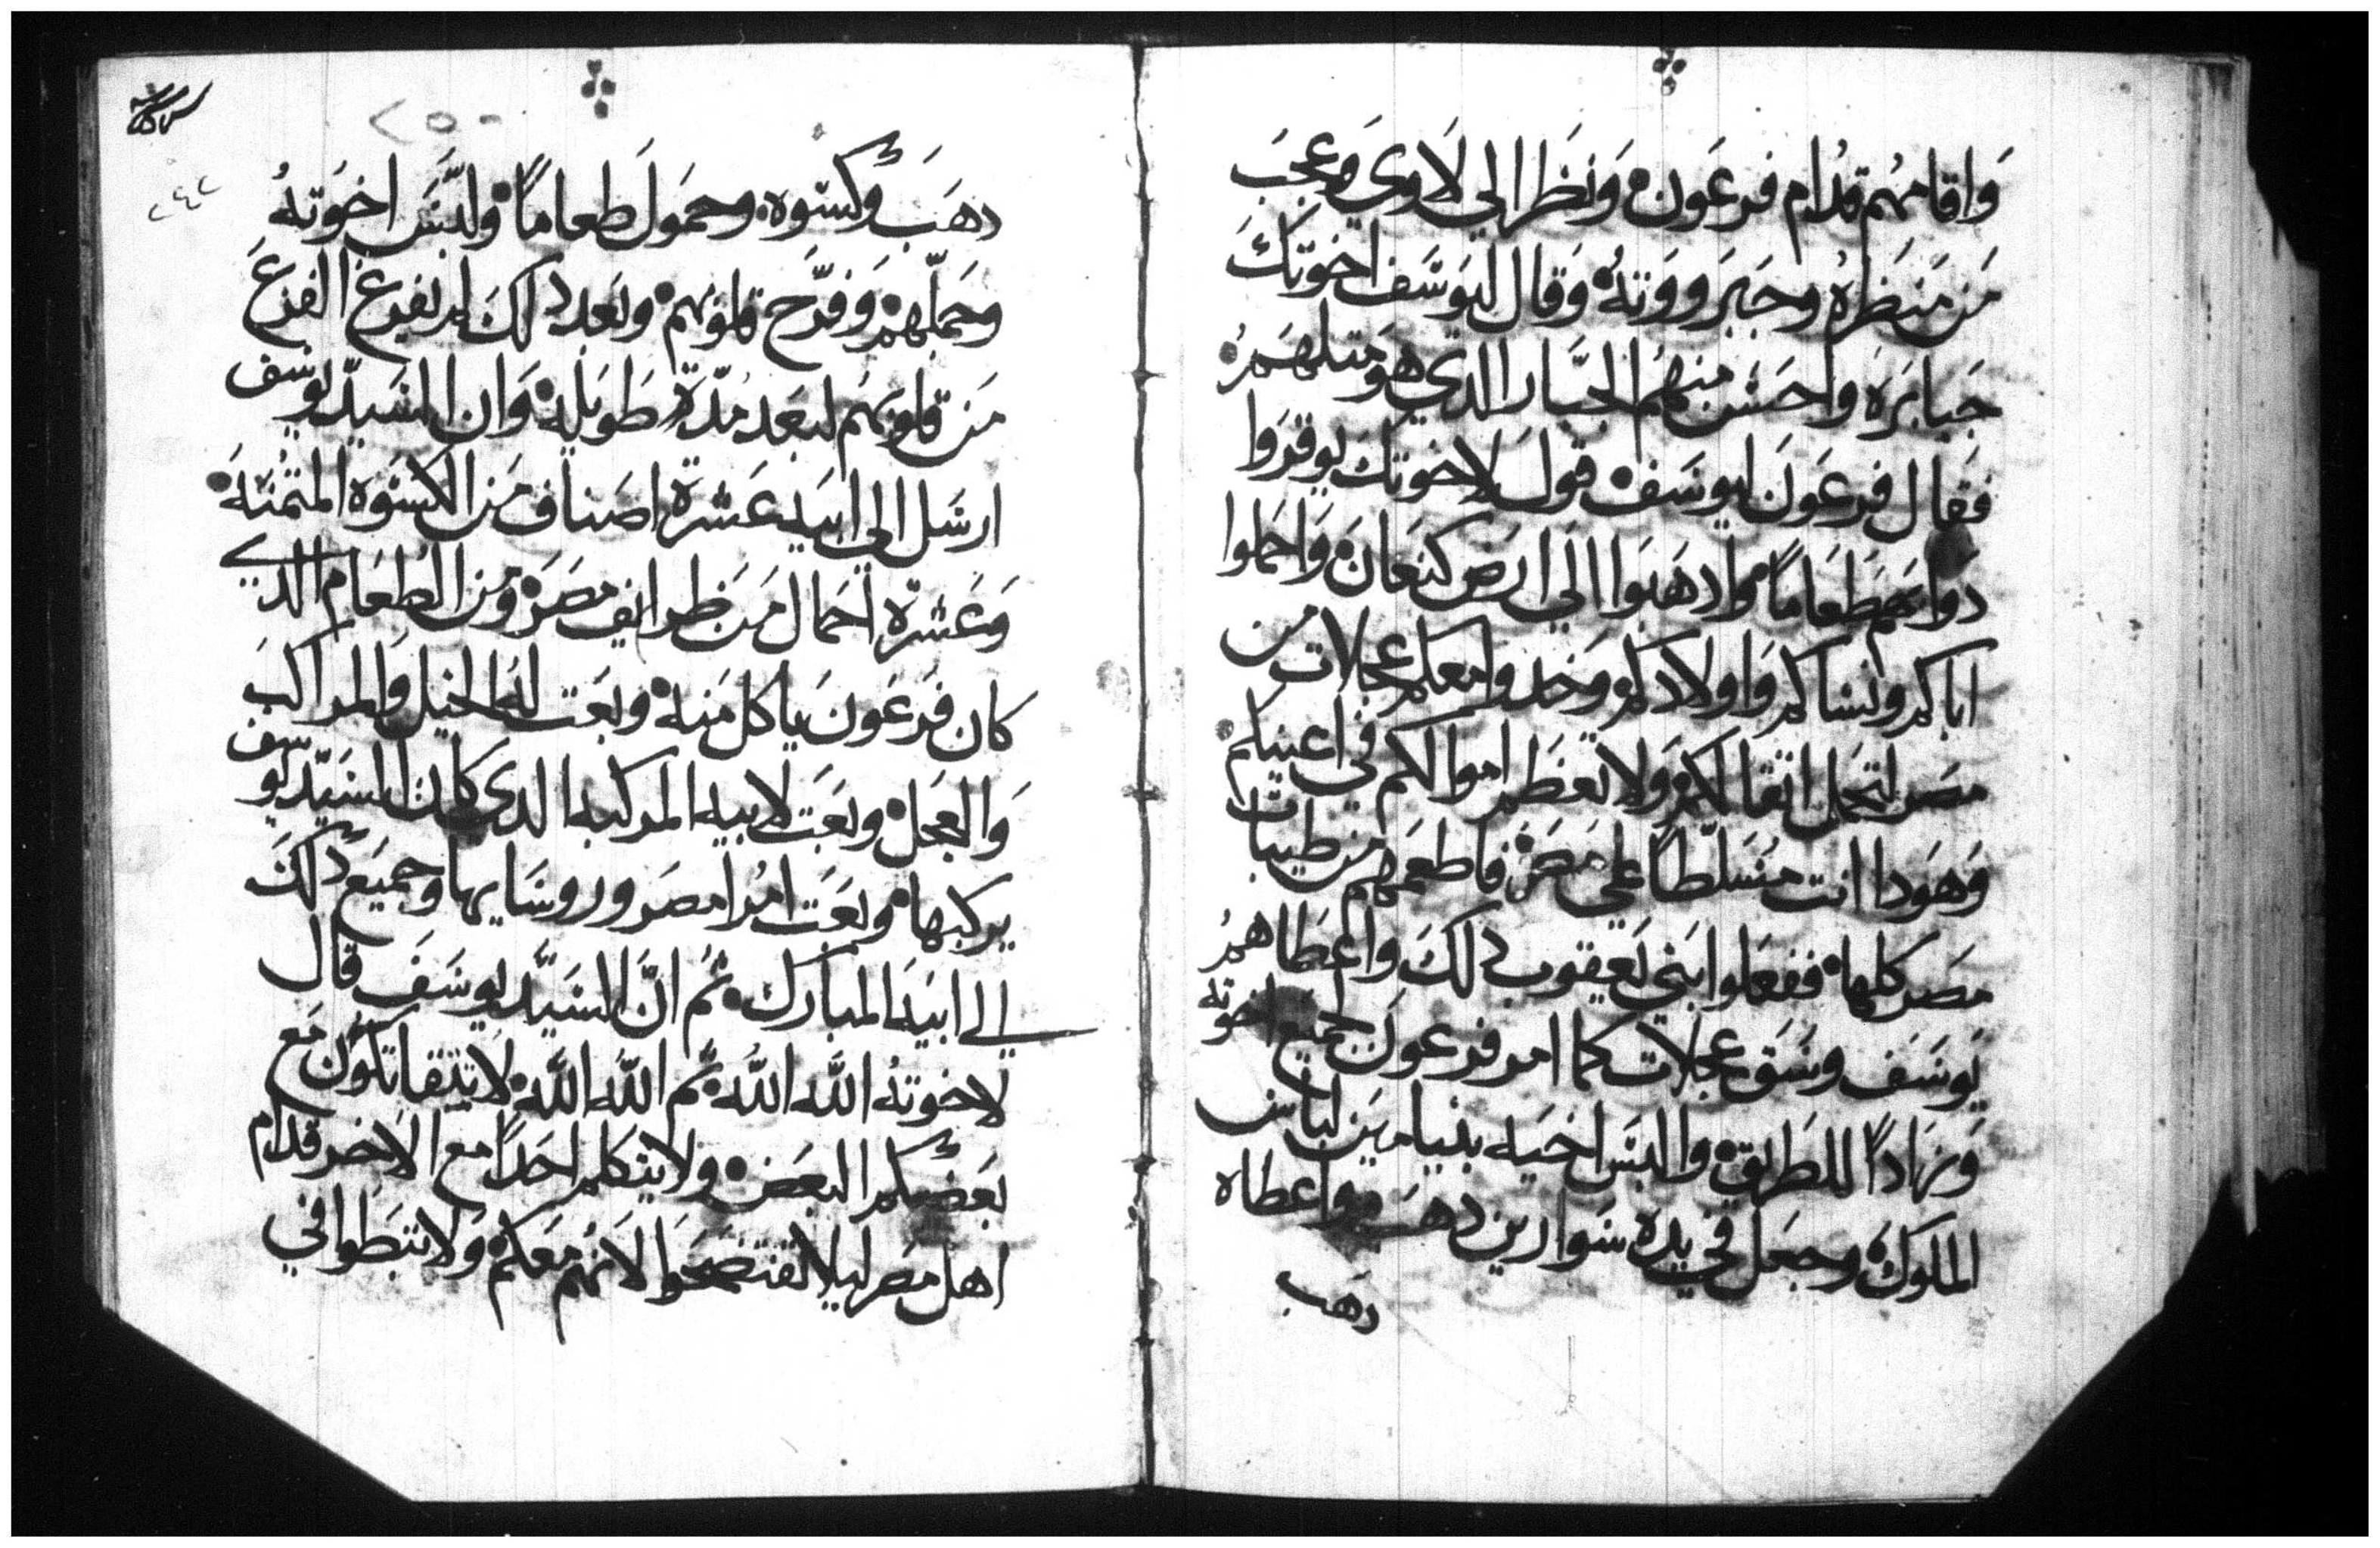 وَاقامهُم قدُام فرعَون وَنظَر الي لَاوي وعجبَ
مَن مَنظَرهُ وجَبَروَوتهُ وَقال ليوسَف اخوتكَ
جَبابَرَه واحسَن منهُم الجبَّار الدي هَو متلهَمُ
فقَال فرعَونَ ليوسَف قول لاخوتكَ يوقروا
دوابهم طَعاماً وادهَبَوا الَي ارَض كنعَان وَاحملوا
اباكم ونساكم وَاولادكم وَخدوا معكم عَجلات من
مصَر لتحمَل اتقالكم وَلا تعظَم اموالكم في اعينكم
وَهَودا انت مسَلطاً علي مصَر فاطعمَهم من طيبات
مصَر كلها ففعلوا بَني يَعقوب دلكَ واعطَاهمُ
يوسَف وسَق عجلات كما امر فرعونَ لجميع اخوته
وَزَهاداً للطَريق والبسَ اخيَه بنيامين لباس
الملوك وجعَل في يدهَ سَوارين دهَب واعطاه
دهَب
٢٥٠
٢٤٤
دهَبَ وكسَوه وحموَل طَعاماً ولبَّسَ اخوَتهُ
وحَمّلهم وَفرَّح قلوَبهم وبعَد دلكَ لم يَفرغ الفزعَ
مَن قلوَبهُم لبَعَد مُدّةٍ طوَيلة وَان السَيدّ يوسَف
ارسَل الي ابيَه عَشرة اصَناف مَن الكسَوه المتمنَة
وَعَشرَة احَمال مَن ظرايف مصَر ومَن الطعَام الدي
كان فرَعَونَ ياكل مَنه وبعَت لهَ الخيل وَالمراكبَ
وَالعَجل وبعَت لابيه المركبه الدي كان السَيّد يوسف
يركبها وبعَتَ امُرا مصَر وروسَايها وجميَع دلكَ
الي ابيَه المبارك ثمُ انّ السَيَّد يوسَفَ قال
لاخوتهُ اللَّه اللَّه ثم اللَّه اللَّه لا تتقاتلوُن مَع
بعَضكم البعَض ولا يتكلم احَداً مع الاخر قدام
اهل مصَر ليلا تفتضحَوا لانهُم مَعَكم وَلا تبَطوا في